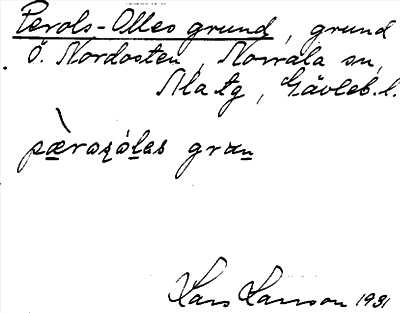 Perols-Olles grund, grund
Ö. Nordosten, Norrala sn,
Ala tg, Gävleb. l.
pæ̀rosólas gran
Lars Larsson 1931